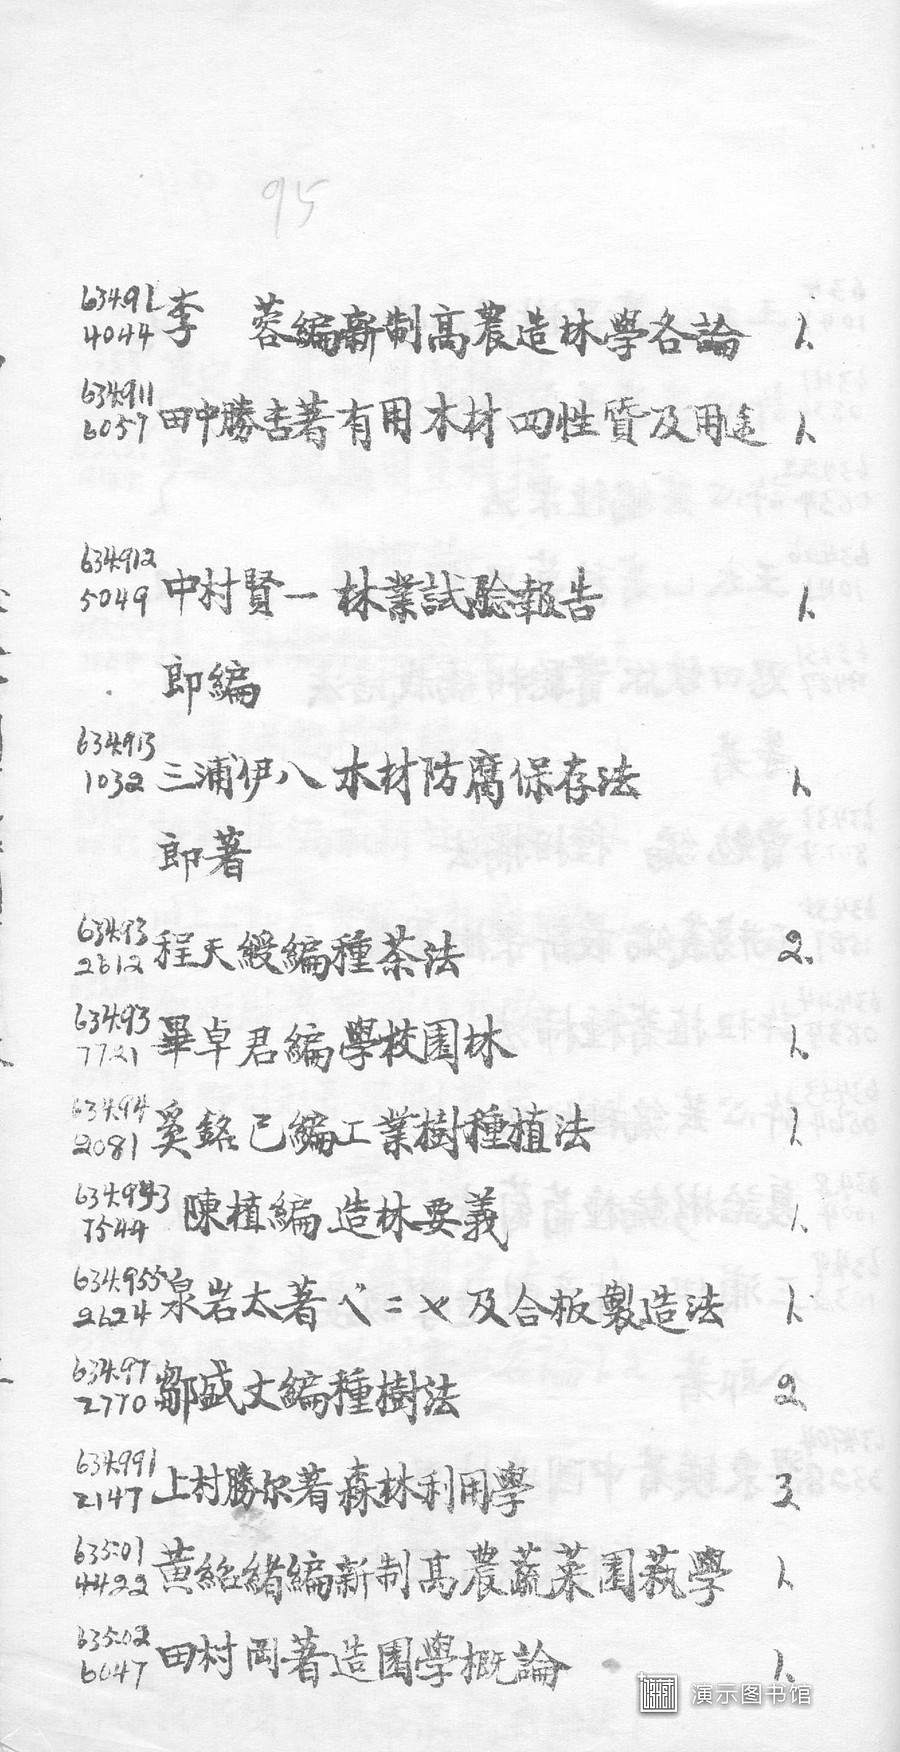 95
634.91 李 蓉編新制高農造林學各論 1.
4044
634.911 田中勝吉著有用木材四性質及用途 1.
6057
634.912 中村賢一 林業試驗報告 1.
5049
郎編
634.913 三浦伊八 木材防腐保存法 1.
1032
郎著
634.93 程天綬編種茶法 2.
2612
634.93 畢卓君編學校園林 1.
7721
634.94 奚銘已編工業樹種植法 1.
2081
634.943 陳植編造林要義 1.
7544
634.955 泉岩太著ベニヤ及合板製造法 1.
2624
634.97 鄒盛文編種樹法 2
2770
634.991 上村勝尔著森林利用學 3
2147
635.01 黃紹緒編新制高農蔬菜園藝學 1.
4422
635.02 田村岡著造園學概論 1.
6047
演示图书馆